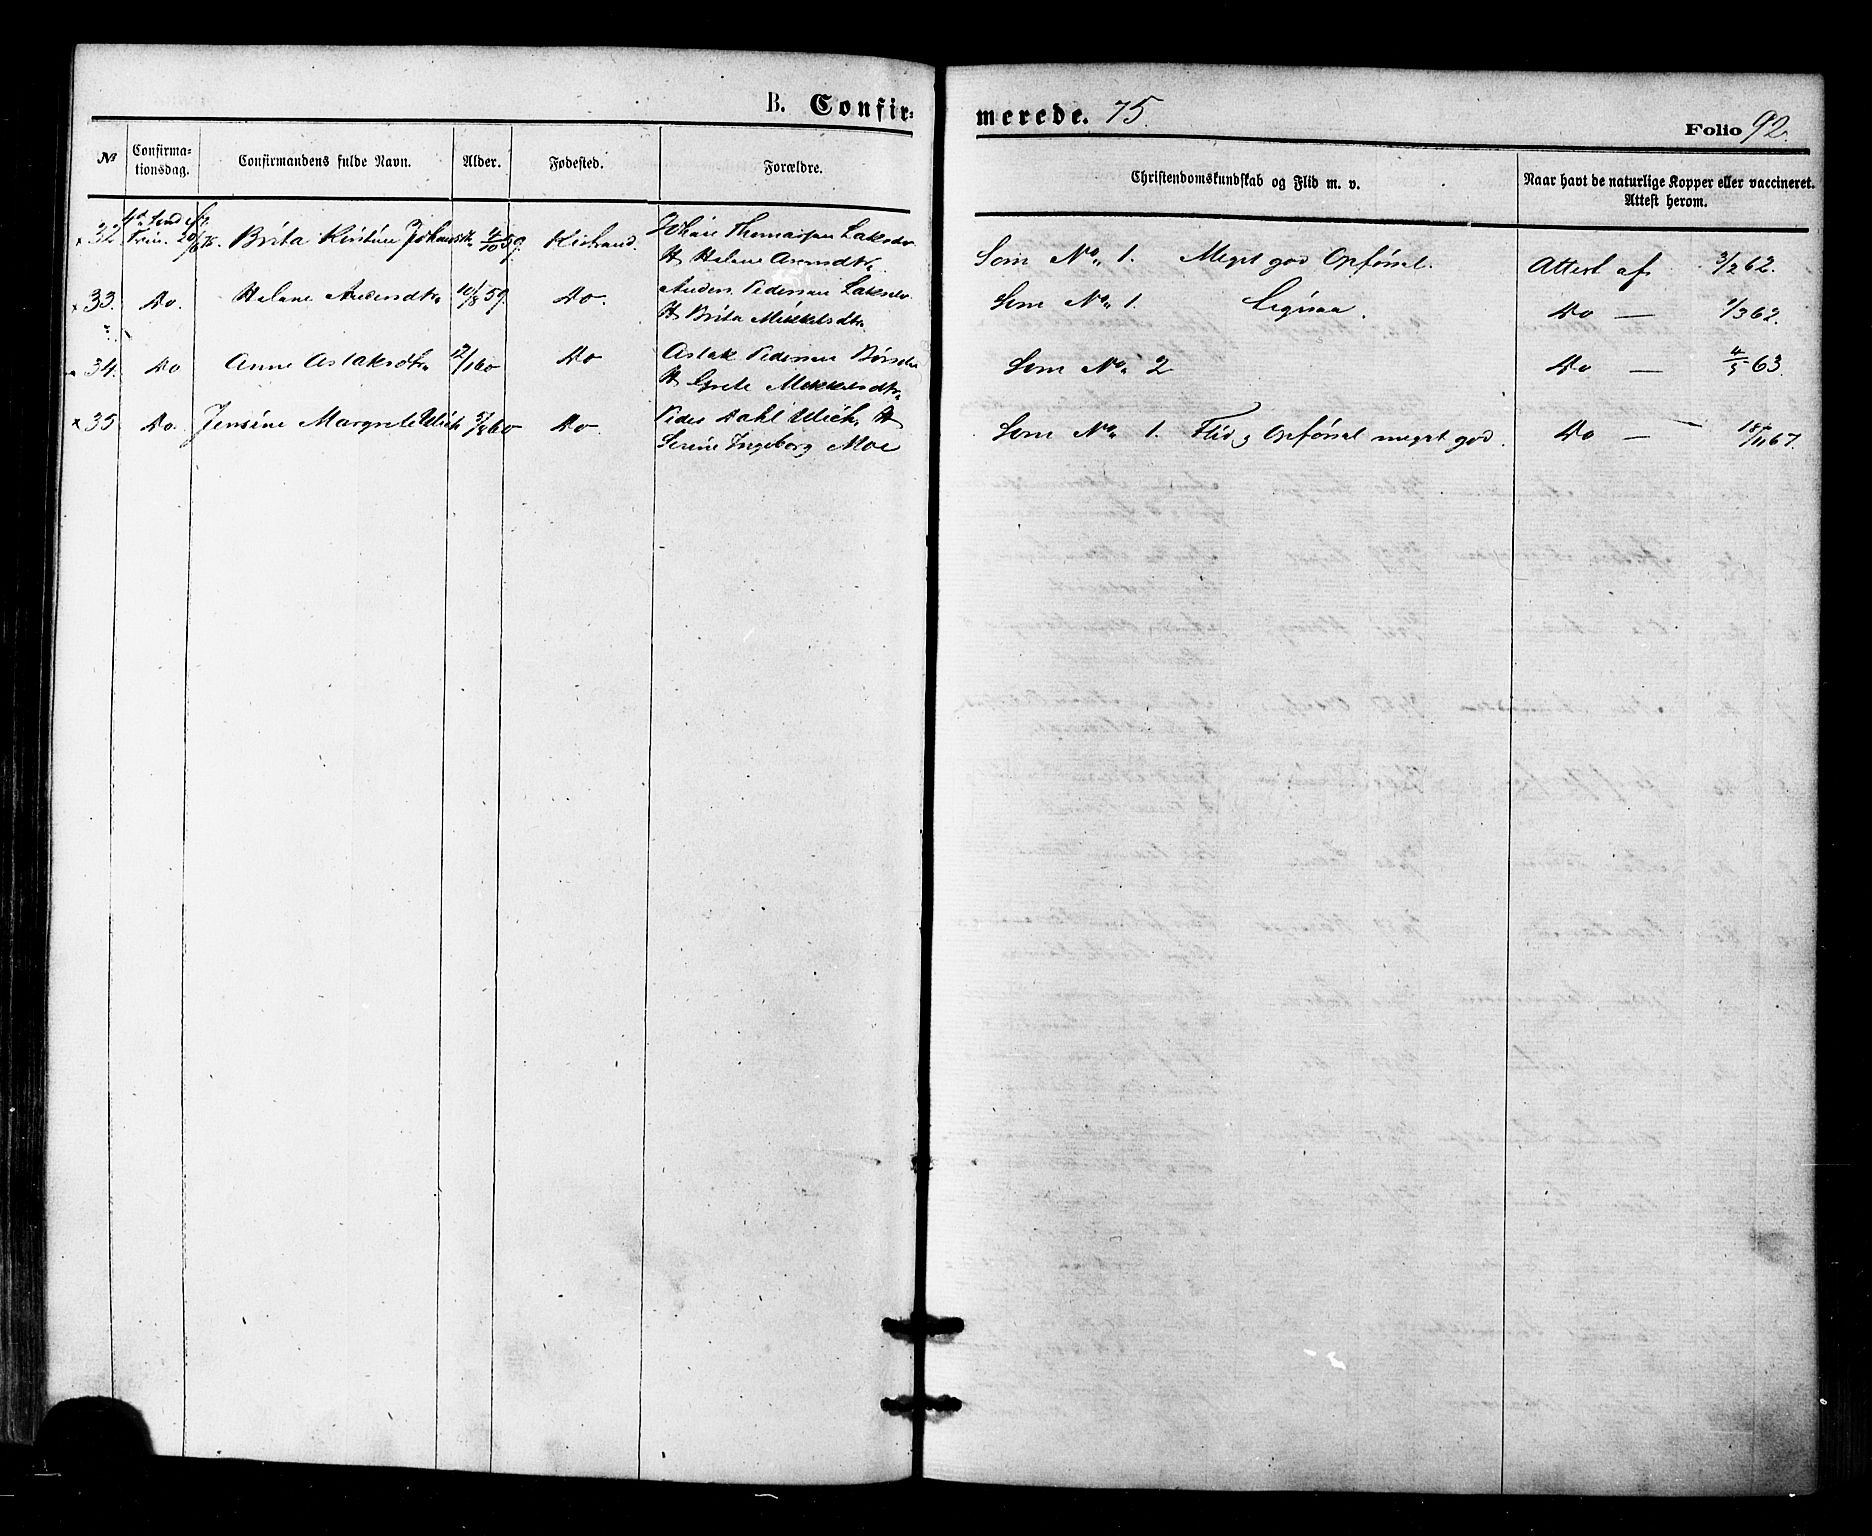 B. Confirmerede. 75.
Folio 92.
No Confirmationsdag. Confirmandens fulde Navn. Alder. Fødested. Forældre. Christendomskundskab og Flid m. v. Naar havt de naturlige Kopper eller vaccineret. Attest herom.
× 32 4de Sønd. e/ Trin. 20/6 75. Brita Kirstine Johansdtr 4/10 59. Kistrand. Johan Thomassen Laksel
H Helene Arensdtr. Som No. 1. Meget god Opførsel. Attest af 3/2 62.
× 33. Do. Helene Andersdtr 10/8 59. Do. Anders Pedersen Lakselv
H Brita Mikkelsdtr Som No. 1. Ligesaa. Do — 1/3 62.
34. Do Anne Aslaksdtr 12/1 60 Do Aslak Pedersen Børselv
H Grete Mikkelsdtr Som No. 2 Do — 4/5 63.
× 35 Do. Jensine Margrete Ulich 5/8 60 Do. Peder Dahl Ulich. H
Serine Ingeborg Moe Som No. 1. Flid og Opførsel meget god. Do — 18/11 67.